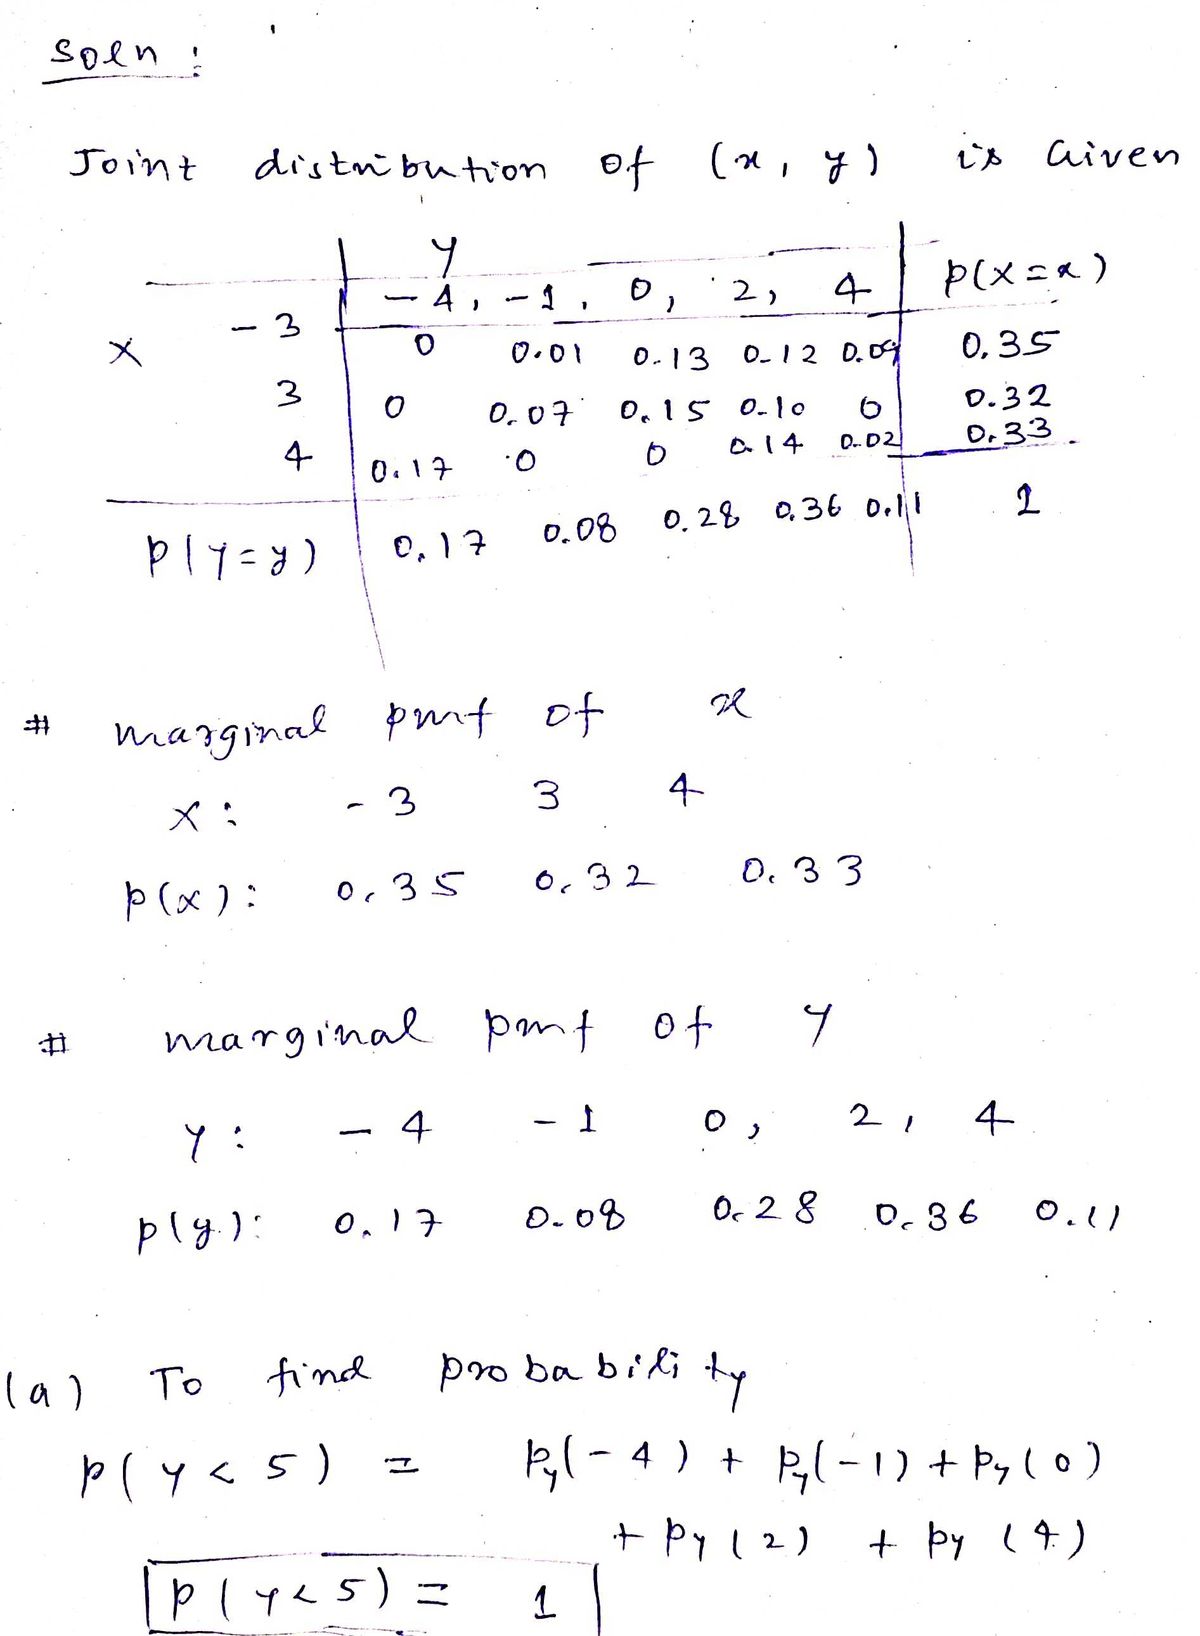 Soln :
Joint distribution of (x, y) is Given
Y
-4, -1, 0, 2, 4 P(X=x)
X -3 0 0.01 0.13 0.12 0.09 0.35
3 0 0.07 0.15 0.10 0 0.32
4 0.17 0 0 0.14 0.02 0.33
P(Y=y) 0.17 0.08 0.28 0.36 0.11 1
# marginal pmf of x
X : -3 3 4
p(x) : 0.35 0.32 0.33
# marginal pmf of Y
Y : -4 -1 0, 2, 4
p(y) : 0.17 0.08 0.28 0.36 0.11
(a) To find probability
P(Y < 5) = Py(-4) + Py(-1) + Py(0)
+ Py(2) + Py(4)
P(Y<5) = 1